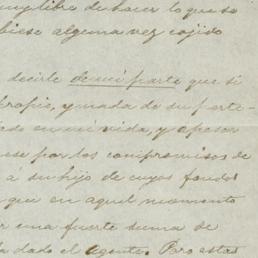 libre de hacer lo que se
biese alguna vez cojido
decirle de mi parte que si
ropia, y nada de su perte-
en mi vida, y apesar
ese por los compromisos de
á su hijo de cuyos fondos
que en aquel momento
una fuerte suma de
dado el agente. Pero estas